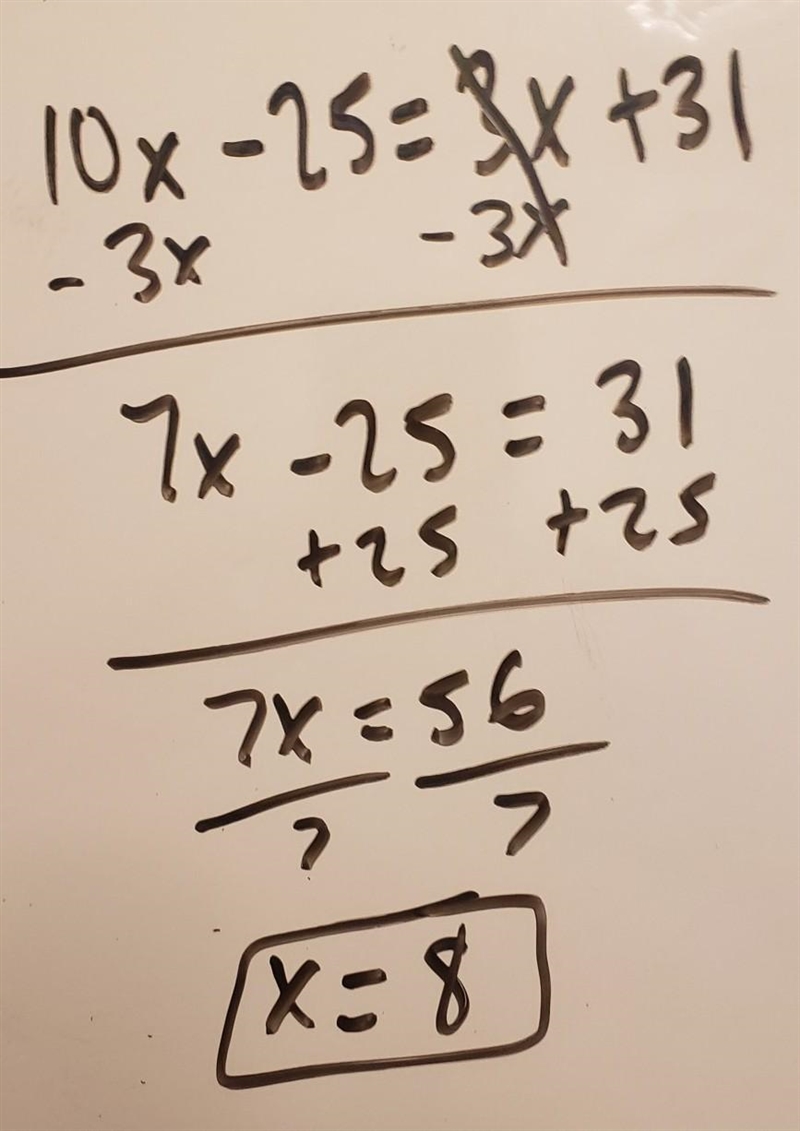 10x - 25 = 3x + 31
- 3x - 3x
7x - 25 = 31
+ 25 + 25
7x = 56
7 7
x = 8